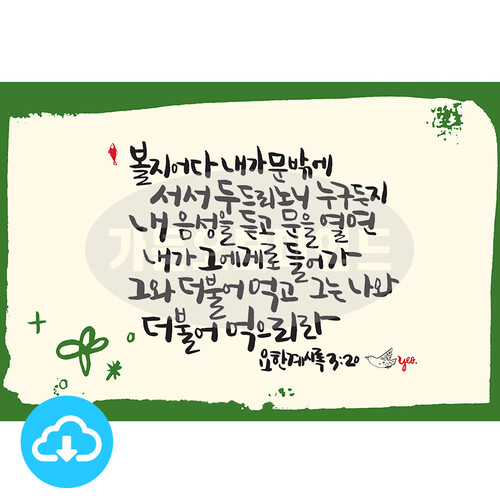 볼지어다 내가 문밖에
서서 두드리노니 누구든지
내 음성을 듣고 문을 열면
내가 그에게로 들어가
그와 더불어 먹고 그는 나와
더불어 먹으리라
요한계시록 3:20 yeo.